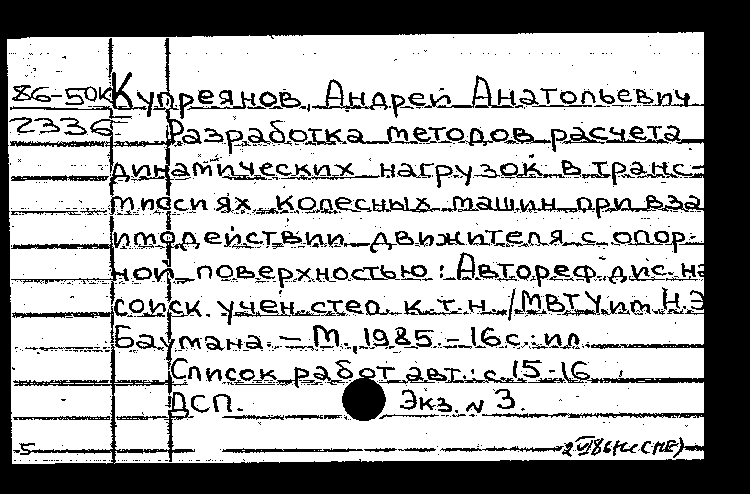 86-50к Купреянов, Андрей Анатольевич
2336 Разработка методов расчета
динамических нагрузок в транс-
миссиях колесных машин при вза
имодействии движителя с опор-
ной поверхностью: Автореф. дис. на
соиск. учен. степ. к.т.н. / МВТУ им. Н.Э.
Баумана. – М., 1985 – 16с.: ил.
Список работ авт.: с. 15-16
ДСП. Экз. N 3.
5